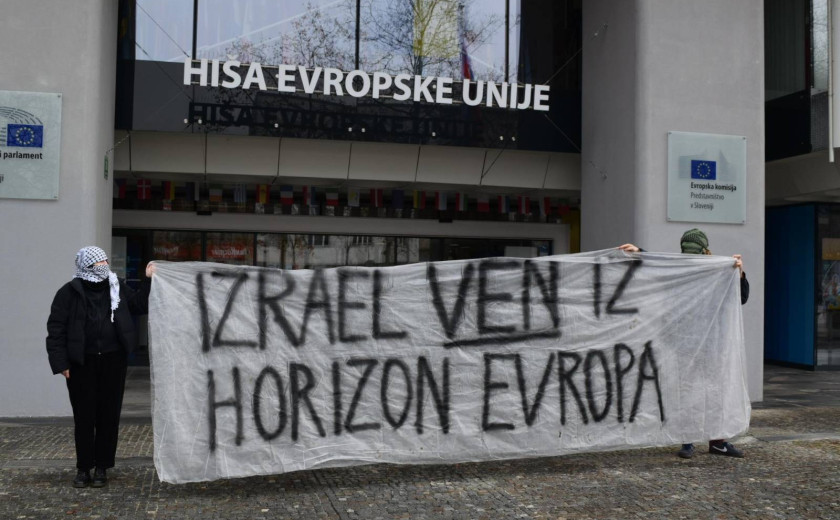 HIŠA EVROPSKE UNIJE
parlament
Evropska komisija
Predstavništvo
v Sloveniji
IZRAEL VEN IZ
HORIZON EVROPA